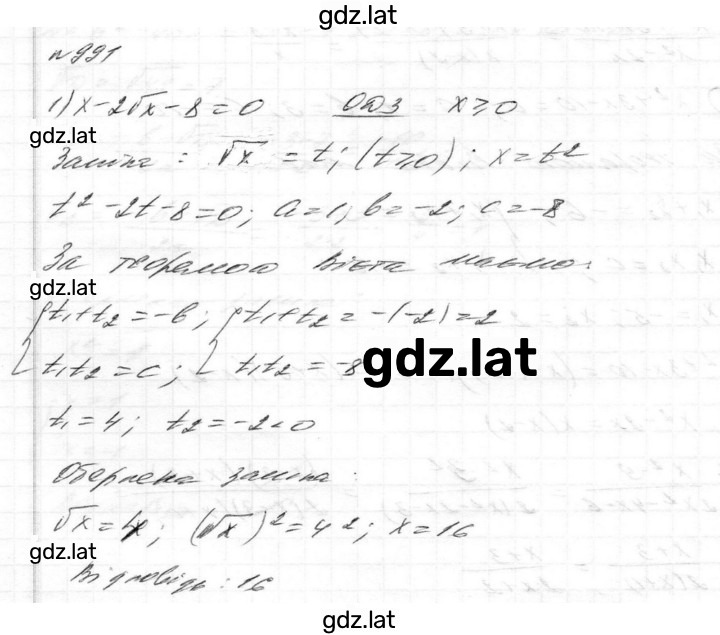 gdz.lat
№991
1) x-2√x-8=0 ОДЗ x≥0
gdz.lat
Заміна: √x=t; (t≥0); x=t²
t²-2t-8=0; a=1; b=-2; c=-8
За теоремою Вієта маємо:
gdz.lat
{t₁+t₂=-b; {t₁+t₂=-(-2)=2
gdz.lat
t₁t₂=c; t₁t₂=-8
t₁=4; t₂=-2<0
Обернена заміна:
√x=4; (√x)²=4²; x=16
gdz.lat
Відповідь: 16
gdz.lat